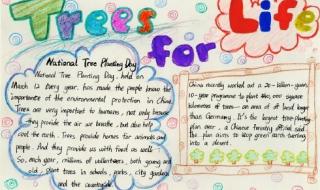 Trees for Life
National Tree Planting Day
National Tree Planting Day, held on
March 12 every year, has made the people know the
importance of the environmental protection in China.
Trees are very important to humans, not only because
they provide the air we breathe, but also help
cool the earth. Trees provide homes for animals and
people. And they provide us with food as well.
So, each year, millions of volunteers, both young and
old, plant trees in schools, parks, city gardens
and the countryside.
China recently worked out a 20-billion-yuan,
10-year programme to plant 440,000 square
kilometres of trees - an area of it large
than Germany. It's the largest tree-planting
plan ever, a Chinese forestry official said.
plan aims to keep green earth turning
into a desert.